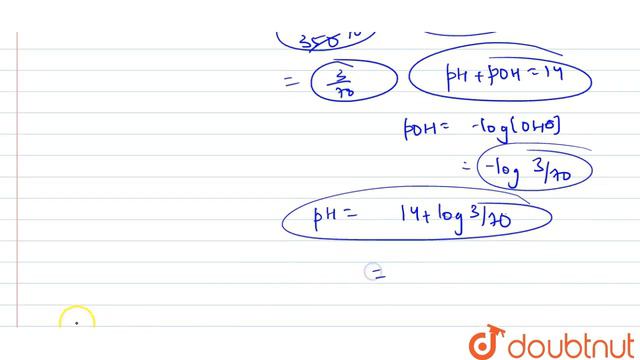 350 10
= 3/70 pH + pOH = 14
pOH = -log[OH⊖]
= -log 3/70
pH = 14 + log 3/70
=
doubtnut